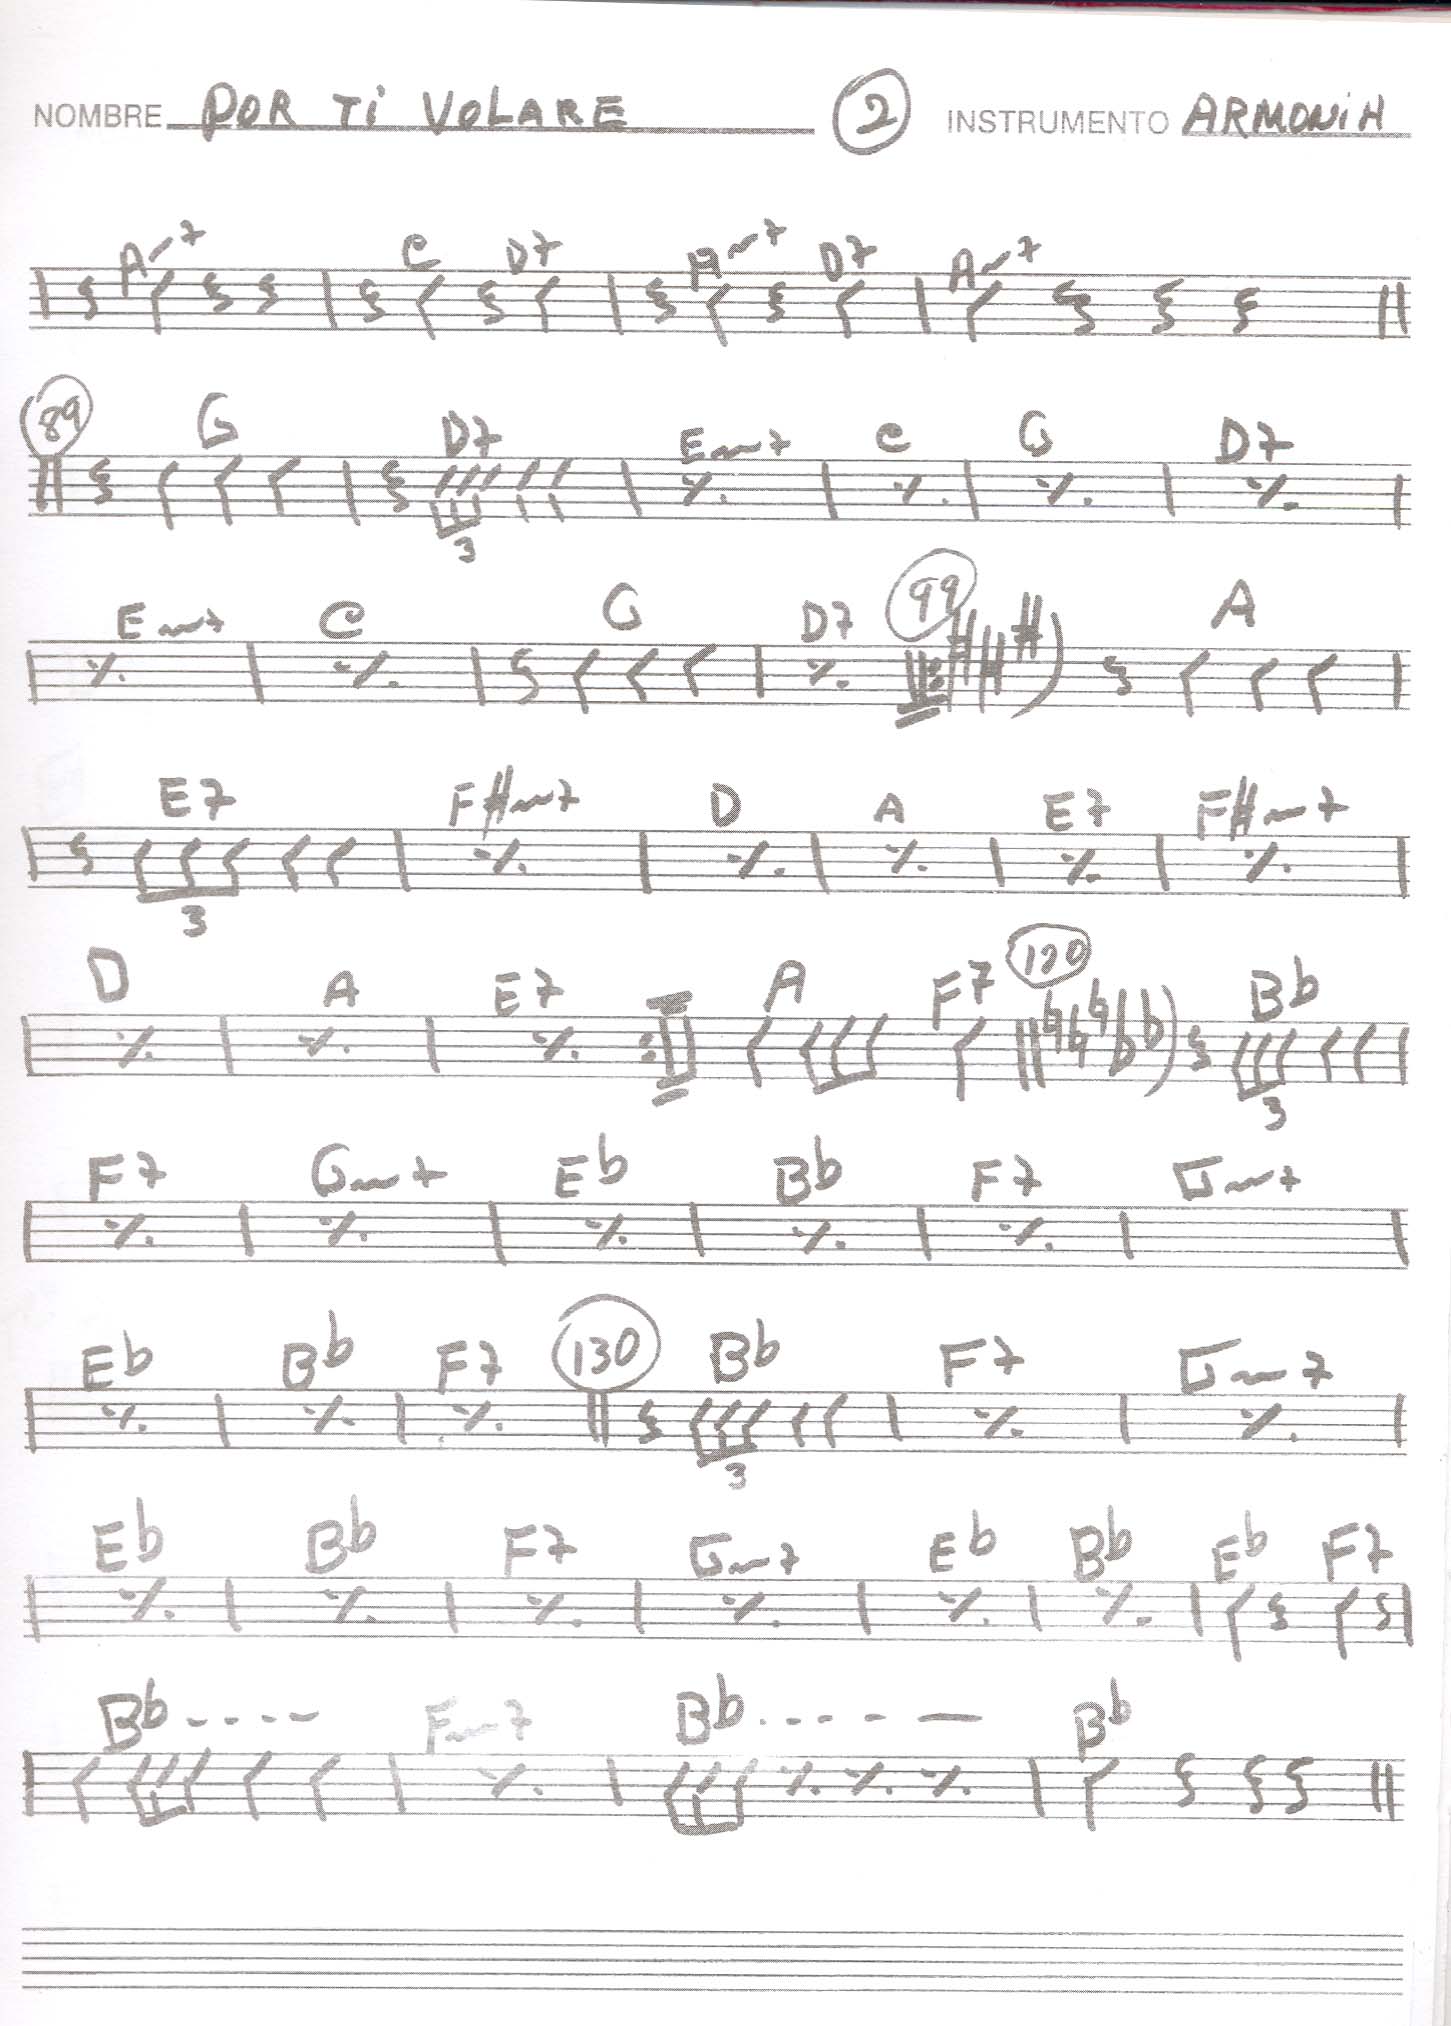 NOMBRE POR Ti VOLARE 2 INSTRUMENTO ARMONiA
Am7 C D7 Am7 D7 Am7
89 G D7 Em7 C G D7
3
Em7 C G D7 99 A
E7 F#m7 D A E7 F#m7
3
D A E7 A F7 120 Bb
3
F7 Gm7 Eb Bb F7 Gm7
Eb Bb F7 130 Bb F7 Gm7
3
Eb Bb F7 Gm7 Eb Bb Eb F7
Bb---- Fm7 Bb.---- Bb